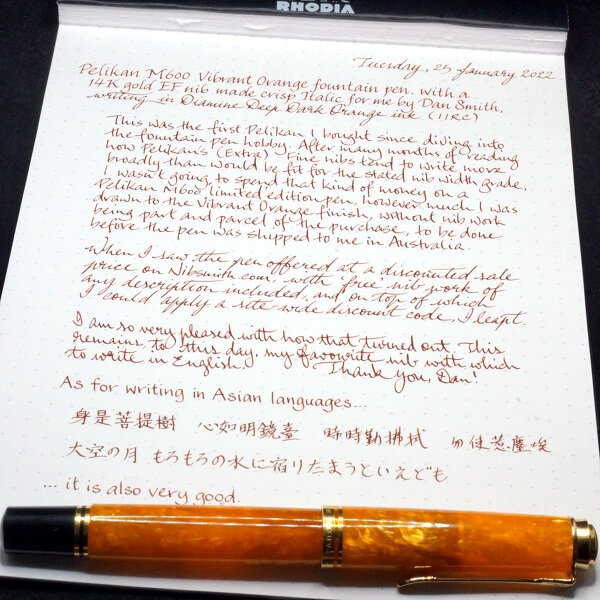 RHODIA
Tuesday, 25 January 2022
Pelikan M600 Vibrant Orange fountain pen, with a
14K gold EF nib made crisp Italic for me by Dan Smith,
writing in Diamine Deep Dark Orange ink (IIRC)
This was the first Pelikan I bought since diving into
the fountain pen hobby. After many months of reading
how Pelikan's (Extra) Fine nibs tend to write more
broadly than would be fit for the stated nib width grade,
I wasn't going to spend that kind of money on a
Pelikan M600 limited edition pen, however much I was
drawn to the Vibrant Orange finish, without nib work
being part and parcel of the purchase, to be done
before the pen was shipped to me in Australia.
When I saw the pen offered at a discounted sale
price on Nibsmith.com, with 'free' nib work of
any description included, and on top of which
I could apply a site-wide discount code, I leapt.
I am so very pleased with how that turned out. This
remains to this day, my favourite nib with which
to write in English. Thank you, Dan!
As for writing in Asian languages...
身是菩提樹 心如明鏡臺 時時勤拂拭 勿使惹塵埃
大空の月 もろもろの水に宿りたまうといえども
... it is also very good.